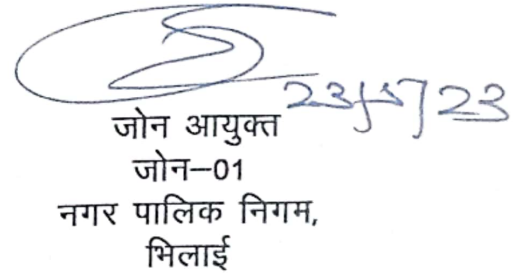 23/5/23
जोन आयुक्त
जोन–01
नगर पालिक निगम,
भिलाई